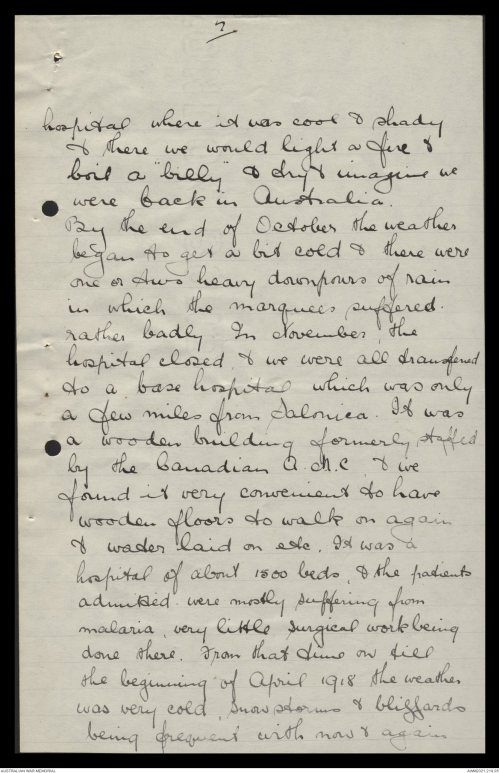 7
hospital where it was cool & shady
& there we would light a fire &
boil a "billy" & try & imagine we
were back in Australia.
By the end of October the weather
began to get a bit cold & there were
one or two heavy downpours of rain
in which the marquees suffered
rather badly. In November, the
hospital closed & we were all transferred
to a base hospital which was only
a few miles from Salonica. It was
a wooden building formerly staffed
by the Canadian A.M.C. & we
found it very convenient to have
wooden floors to walk on again
& water laid on etc. It was a
hospital of about 1500 beds, & the patients
admitted were mostly suffering from
malaria, very little surgical work being
done there. From that time on till
the beginning of April 1918 the weather
was very cold, snow storms & blizzards
being frequent with now & again
AUSTRALIAN WAR MEMORIAL